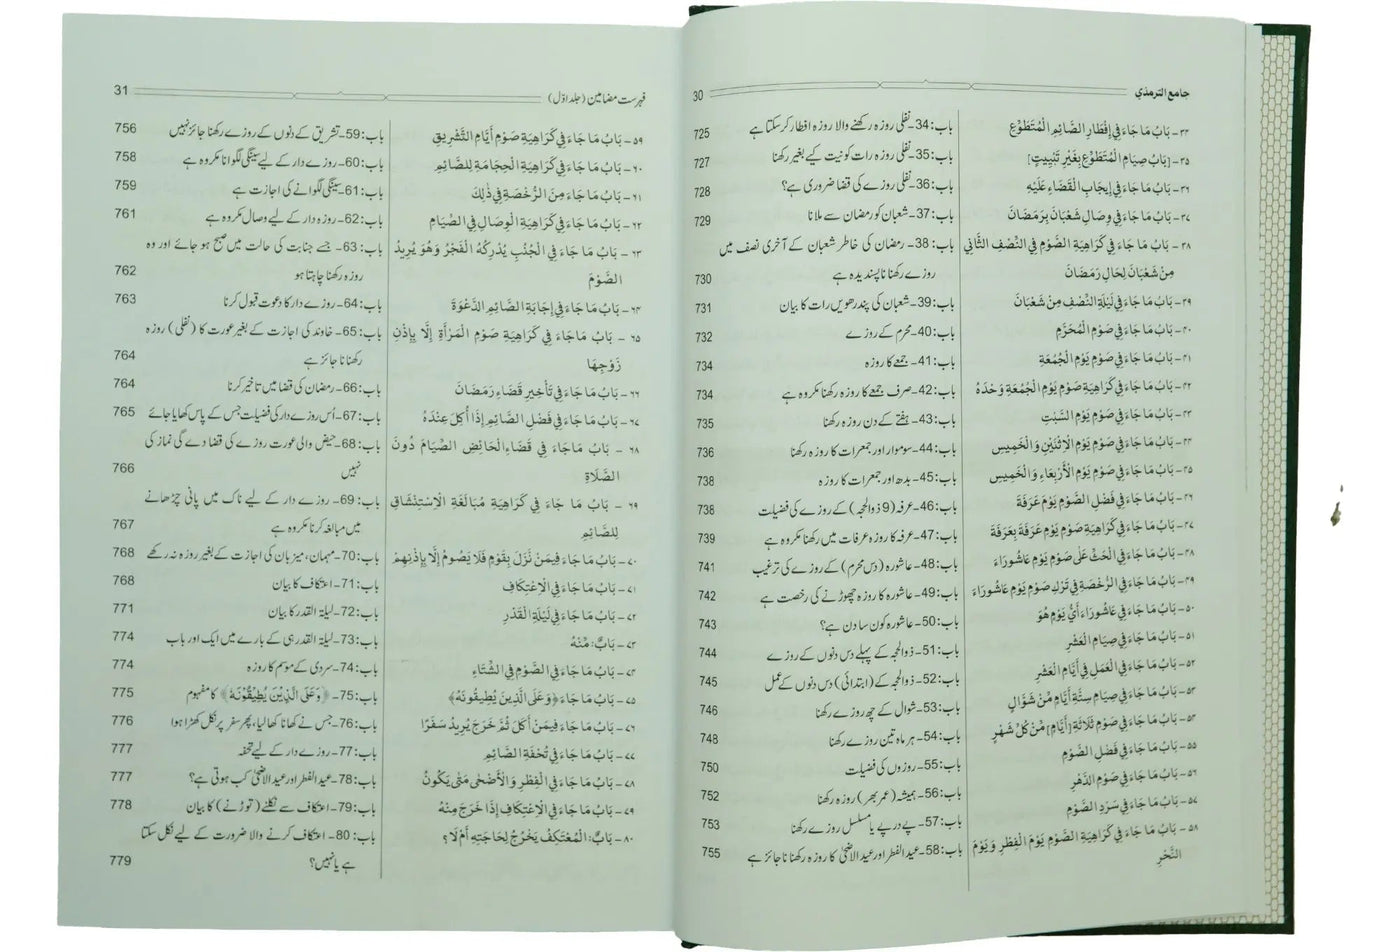 جامع الترمذي 30
۳۴ - بَابُ مَا جَاءَ فِي إِفْطَارِ الصَّائِمِ الْمُتَطَوِّعِ باب: 34- نفلی روزہ رکھنے والا روزہ افطار کر سکتا ہے 725
۳۵ - [بَابُ صِيَامِ الْمُتَطَوِّعِ بِغَيْرِ تَبْيِيتٍ] باب: 35- نفلی روزہ رات کو نیت کیے بغیر رکھنا 727
۳۶ - بَابُ مَا جَاءَ فِي إِيجَابِ الْقَضَاءِ عَلَيْهِ باب: 36- نفلی روزے کی قضا ضروری ہے؟ 728
۳۷ - بَابُ مَا جَاءَ فِي وِصَالِ شَعْبَانَ بِرَمَضَانَ باب: 37- شعبان کو رمضان سے ملانا 729
۳۸ - بَابُ مَا جَاءَ فِي كَرَاهِيَةِ الصَّوْمِ فِي النِّصْفِ الثَّانِي باب: 38- رمضان کی خاطر شعبان کے آخری نصف میں
مِنْ شَعْبَانَ لِحَالِ رَمَضَانَ روزے رکھنا ناپسندیدہ ہے 730
۳۹ - بَابُ مَا جَاءَ فِي لَيْلَةِ النِّصْفِ مِنْ شَعْبَانَ باب: 39- شعبان کی پندرھویں رات کا بیان 731
۴۰ - بَابُ مَا جَاءَ فِي صَوْمِ الْمُحَرَّمِ باب: 40- محرم کے روزے 732
۴۱ - بَابُ مَا جَاءَ فِي صَوْمِ يَوْمِ الْجُمُعَةِ باب: 41- جمعے کا روزہ 734
۴۲ - بَابُ مَا جَاءَ فِي كَرَاهِيَةِ صَوْمِ يَوْمِ الْجُمُعَةِ وَحْدَهُ باب: 42- صرف جمعے کا روزہ رکھنا مکروہ ہے 734
۴۳ - بَابُ مَا جَاءَ فِي صَوْمِ يَوْمِ السَّبْتِ باب: 43- ہفتے کے دن روزہ رکھنا 735
۴۴ - بَابُ مَا جَاءَ فِي صَوْمِ يَوْمِ الِاثْنَيْنِ وَالْخَمِيسِ باب: 44- سوموار اور جمعرات کا روزہ رکھنا 736
۴۵ - بَابُ مَا جَاءَ فِي صَوْمِ يَوْمِ الْأَرْبِعَاءِ وَالْخَمِيسِ باب: 45- بدھ اور جمعرات کا روزہ 738
۴۶ - بَابُ مَا جَاءَ فِي فَضْلِ الصَّوْمِ يَوْمَ عَرَفَةَ باب: 46- عرفہ (9 ذوالحجہ) کے روزے کی فضیلت 738
۴۷ - بَابُ مَا جَاءَ فِي كَرَاهِيَةِ صَوْمِ يَوْمِ عَرَفَةَ بِعَرَفَةَ باب: 47- عرفہ کا روزہ عرفات میں رکھنا مکروہ ہے 739
۴۸ - بَابُ مَا جَاءَ فِي الْحَثِّ عَلَى صَوْمِ يَوْمِ عَاشُورَاءَ باب: 48- عاشورہ (دس محرم) کے روزے کی ترغیب 741
۴۹ - بَابُ مَا جَاءَ فِي الرُّخْصَةِ فِي تَرْكِ صَوْمِ يَوْمِ عَاشُورَاءَ باب: 49- عاشورہ کا روزہ چھوڑنے کی رخصت ہے 742
۵۰ - بَابُ مَا جَاءَ فِي عَاشُورَاءَ أَيُّ يَوْمٍ هُوَ باب: 50- عاشورہ کون سا دن ہے؟ 743
۵۱ - بَابُ مَا جَاءَ فِي صِيَامِ الْعَشْرِ باب: 51- ذوالحجہ کے پہلے دس دنوں کے روزے 744
۵۲ - بَابُ مَا جَاءَ فِي الْعَمَلِ فِي أَيَّامِ الْعَشْرِ باب: 52- ذوالحجہ کے (ابتدائی) دس دنوں کے عمل 745
۵۳ - بَابُ مَا جَاءَ فِي صِيَامِ سِتَّةِ أَيَّامٍ مِنْ شَوَّالٍ باب: 53- شوال کے چھ روزے رکھنا 746
۵۴ - بَابُ مَا جَاءَ فِي صَوْمِ ثَلَاثَةِ [أَيَّامٍ] مِنْ كُلِّ شَهْرٍ باب: 54- ہر ماہ تین روزے رکھنا 748
۵۵ - بَابُ مَا جَاءَ فِي فَضْلِ الصَّوْمِ باب: 55- روزوں کی فضیلت 750
۵۶ - بَابُ مَا جَاءَ فِي صَوْمِ الدَّهْرِ باب: 56- ہمیشہ (عمر بھر) روزہ رکھنا 752
۵۷ - بَابُ مَا جَاءَ فِي سَرْدِ الصَّوْمِ باب: 57- پے در پے یا مسلسل روزے رکھنا 753
۵۸ - بَابُ مَا جَاءَ فِي كَرَاهِيَةِ الصَّوْمِ يَوْمَ الْفِطْرِ وَيَوْمَ باب: 58- عید الفطر اور عید الاضحیٰ کا روزہ رکھنا ناجائز ہے 755
النَّحْرِ
فہرست مضامین (جلد اوّل) 31
۵۹ - بَابُ مَا جَاءَ فِي كَرَاهِيَةِ صَوْمِ أَيَّامِ التَّشْرِيقِ باب: 59- تشریق کے دنوں کے روزے رکھنا جائز نہیں 756
۶۰ - بَابُ مَا جَاءَ فِي كَرَاهِيَةِ الْحِجَامَةِ لِلصَّائِمِ باب: 60- روزے دار کے لیے سینگی لگوانا مکروہ ہے 758
۶۱ - بَابُ مَا جَاءَ مِنَ الرُّخْصَةِ فِي ذَلِكَ باب: 61- سینگی لگوانے کی اجازت ہے 759
۶۲ - بَابُ مَا جَاءَ فِي كَرَاهِيَةِ الْوِصَالِ فِي الصِّيَامِ باب: 62- روزہ دار کے لیے وصال مکروہ ہے 761
۶۳ - بَابُ مَا جَاءَ فِي الْجُنُبِ يُدْرِكُهُ الْفَجْرُ وَهُوَ يُرِيدُ باب: 63- جسے جنابت کی حالت میں صبح ہو جائے اور وہ
الصَّوْمَ روزہ رکھنا چاہتا ہو 762
۶۴ - بَابُ مَا جَاءَ فِي إِجَابَةِ الصَّائِمِ الدَّعْوَةَ باب: 64- روزے دار کا دعوت قبول کرنا 763
۶۵ - بَابُ مَاجَاءَ فِي كَرَاهِيَةِ صَوْمِ الْمَرْأَةِ إِلَّا بِإِذْنِ باب: 65- خاوند کی اجازت کے بغیر عورت کا (نفلی) روزہ
زَوْجِهَا رکھنا ناجائز ہے 764
۶۶ - بَابُ مَا جَاءَ فِي تَأْخِيرِ قَضَاءِ رَمَضَانَ باب: 66- رمضان کی قضا میں تاخیر کرنا 764
۶۷ - بَابُ مَا جَاءَ فِي فَضْلِ الصَّائِمِ إِذَا أُكِلَ عِنْدَهُ باب: 67- اُس روزے دار کی فضیلت جس کے پاس کھایا جائے 765
۶۸ - بَابُ مَاجَاءَ فِي قَضَاءِ الْحَائِضِ الصِّيَامَ دُونَ باب: 68- حیض والی عورت روزے کی قضا دے گی نماز کی
الصَّلَاةِ نہیں 766
۶۹ - بَابُ مَا جَاءَ فِي كَرَاهِيَةِ مُبَالَغَةِ الِاسْتِنْشَاقِ باب: 69- روزے دار کے لیے ناک میں پانی چڑھانے
لِلصَّائِمِ میں مبالغہ کرنا مکروہ ہے 767
۷۰ - بَابُ مَا جَاءَ فِيمَنْ نَزَلَ بِقَوْمٍ فَلَا يَصُومُ إِلَّا بِإِذْنِهِمْ باب: 70- مہمان، میزبان کی اجازت کے بغیر روزہ نہ رکھے 768
۷۱ - بَابُ مَا جَاءَ فِي الِاعْتِكَافِ باب: 71- اعتکاف کا بیان 768
۷۲ - بَابُ مَا جَاءَ فِي لَيْلَةِ الْقَدْرِ باب: 72- لیلۃ القدر کا بیان 771
۷۳ - بَابٌ: مِنْهُ باب: 73- لیلۃ القدر ہی کے بارے میں ایک اور باب 774
۷۴ - بَابُ مَا جَاءَ فِي الصَّوْمِ فِي الشِّتَاءِ باب: 74- سردی کے موسم کا روزہ 774
۷۵ - بَابُ مَا جَاءَ ﴿وَعَلَى الَّذِينَ يُطِيقُونَهُ﴾ باب: 75- ﴿وَعَلَى الَّذِيْنَ يُطِيْقُوْنَهُ﴾ کا مفہوم 775
۷۶ - بَابُ مَا جَاءَ فِيمَنْ أَكَلَ ثُمَّ خَرَجَ يُرِيدُ سَفَرًا باب: 76- جس نے کھانا کھا لیا، پھر سفر پر نکل کھڑا ہوا 776
۷۷ - بَابُ مَا جَاءَ فِي تُحْفَةِ الصَّائِمِ باب: 77- روزے دار کے لیے تحفہ 777
۷۸ - بَابُ مَا جَاءَ فِي الْفِطْرِ وَالْأَضْحَى مَتَى يَكُونُ باب: 78- عید الفطر اور عید الاضحیٰ کب ہوتی ہے؟ 777
۷۹ - بَابُ مَا جَاءَ فِي الِاعْتِكَافِ إِذَا خَرَجَ مِنْهُ باب: 79- اعتکاف سے نکلنے (توڑنے) کا بیان 778
۸۰ - بَابٌ: الْمُعْتَكِفُ يَخْرُجُ لِحَاجَتِهِ أَمْ لَا؟ باب: 80- اعتکاف کرنے والا ضرورت کے لیے نکل سکتا
ہے یا نہیں؟ 779